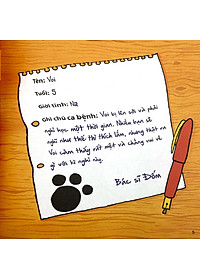 Tên: Voi
Tuổi: 5
Giới tính: Nữ
Ghi chú ca bệnh: Voi bị lên sởi và phải
nghỉ học một thời gian. Nhiều bạn sẽ
nghĩ như thế thì thích lắm, nhưng thật ra
Voi cảm thấy rất mệt và chẳng vui vẻ
gì với kì nghỉ này.
Bác sĩ Đốm